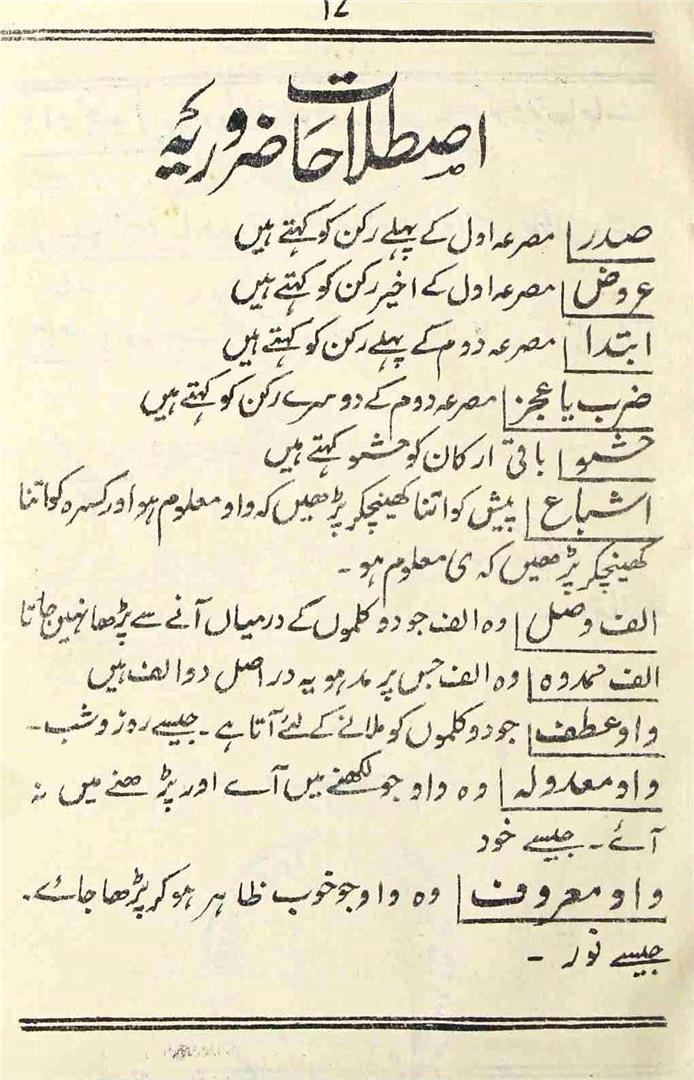 ۱۷
اصطلاحات ضروریہ
صدر | مصرعہ اول کے پہلے رکن کو کہتے ہیں
عروض | مصرعہ اول کے اخیر رکن کو کہتے ہیں
ابتدا | مصرعہ دوم کے پہلے رکن کو کہتے ہیں
ضرب یا عجز | مصرعہ دوم کے دوسرے رکن کو کہتے ہیں
حشو | باقی ارکان کو حشو کہتے ہیں
اشباع | پیش کو اتنا کھینچکر پڑھیں کہ واو معلوم ہو اور کسرہ کو اتنا
کھینچکر پڑھیں کہ ی معلوم ہو ۔
الف وصل | وہ الف جو دو کلموں کے درمیاں آنے سے پڑھا نہیں جاتا
الف ممدوہ | وہ الف جس پر مد ہو یہ در اصل دو الف ہیں
واو عطف | جو دو کلموں کو ملانے کے لئے آتا ہے ۔ جیسے روز و شب ۔
واو معدولہ | وہ واو جو لکھنے میں آے اور پڑھنے میں نہ
آئے ۔ جیسے خود
واو معروف | وہ واو جو خوب ظاہر ہو کر پڑھا جائے ۔
جیسے نور ۔